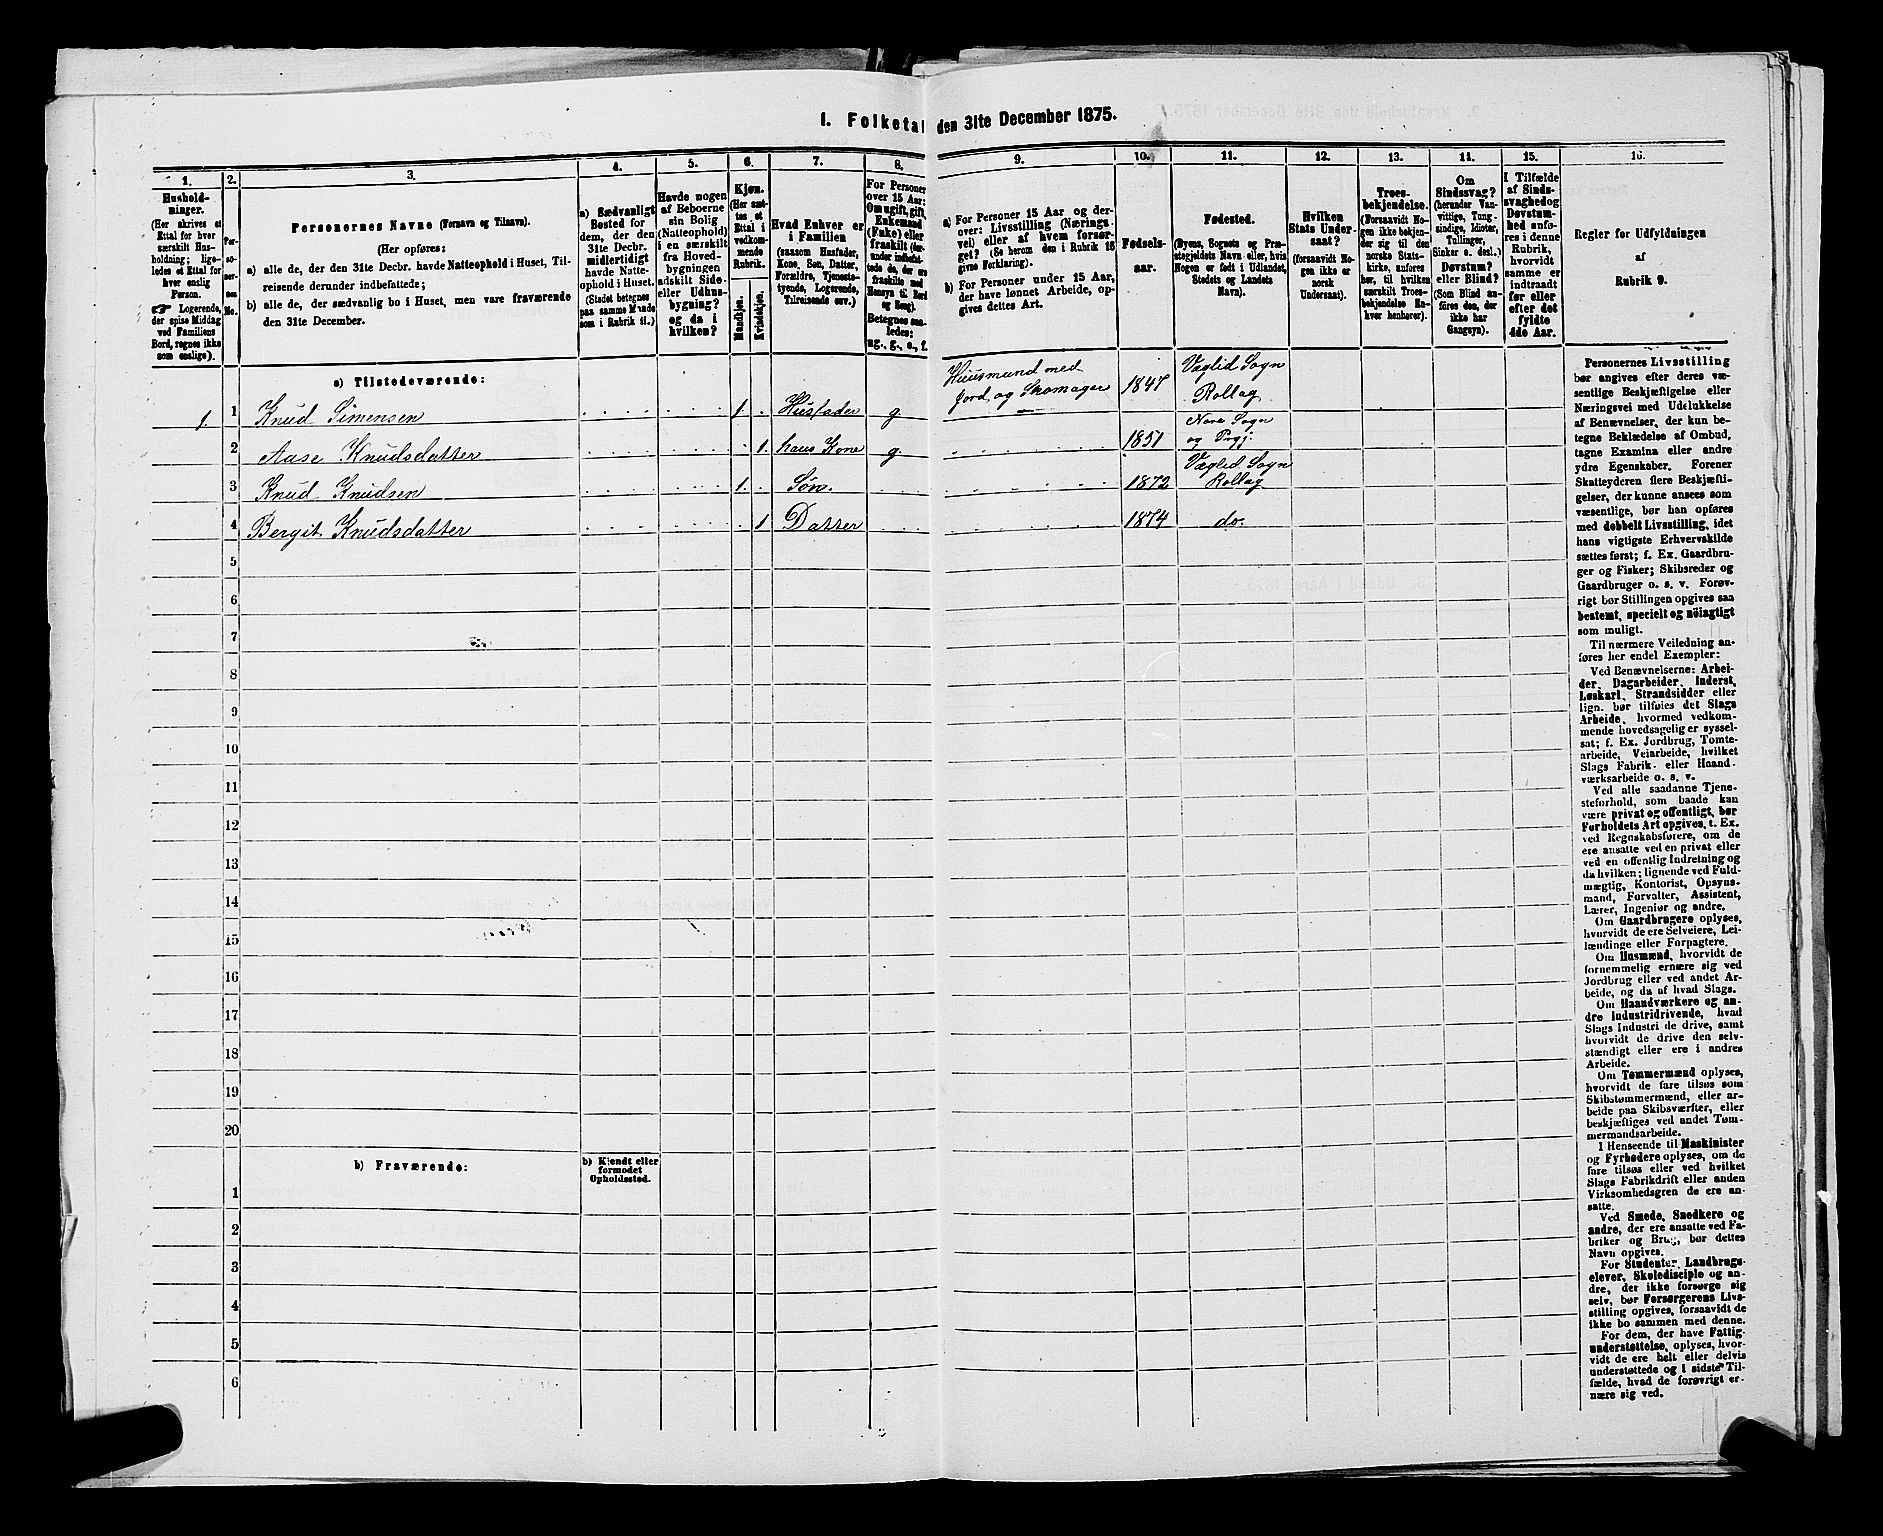 I. Folketal den 31te December 1875.
1.
Hushold-
ninger.
(Her skrives et
Ettal for hver
særskilt Hus-
holdning; lige-
ledes et Ettal for
hver enslig
Person.
☞ Logerende,
der spise Middag
ved Familiens
Bord, regnes ikke
som enslige).
2.
Per-
so-
ner-
nes
No.
3.
Personernes Navne (Fornavn og Tilnavn).
(Her opføres:
a) alle de, der den 31te Decbr. havde Natteophold i Huset, Til-
reisende derunder indbefattede;
b) alle de, der sædvanlig bo i Huset, men vare fraværende
den 31te December.
4.
a) Sædvanligt
Bosted for
dem, der den
31te Decbr.
midlertidigt
havde Natte-
ophold i Huset.
(Stedet betegnes
paa samme Maade
som i Rubrik 11.)
5.
Havde nogen
af Beboerne
sin Bolig
(Natteophold)
i en særskilt
fra Hoved-
bygningen
adskilt Side-
eller Udhus-
bygning?
og da i
hvilken?
6.
Kjøn.
(Her sæt-
tes et
Ettal i
vedkom-
mende
Rubrik.
Mandkjøn.
Kvindekjøn.
7.
Hvad Enhver er
i Familien
(saasom Husfader,
Kone, Søn, Datter,
Forældre, Tjeneste-
tyende, Logerende,
Tilreisende osv.)
8.
For Personer
over 15 Aar:
Om ugift, gift,
Enkemand
(Enke) eller
fraskilt (der-
under indbefat-
tede de, der ere
fraskilte med
Hensyn til Bord
og Seng).
Betegnes saa-
ledes:
ug., g., e., f.
9.
a) For Personer 15 Aar og der-
over: Livsstilling (Nærings-
vei) eller af hvem forsør-
get? (Se herom den i Rubrik 16
givne Forklaring).
b) For Personer under 15 Aar,
der have lønnet Arbeide, op-
gives dettes Art.
10.
Fødsels-
aar.
11.
Fødested.
(Byens, Sognets og Præ-
stegjeldets Navn eller, hvis
Nogen er født i Udlandet,
Stedets og Landets
Navn).
12.
Hvilken
Stats Under-
saat?
(forsaavidt No-
gen ikke er
norsk
Undersaat).
13.
Troes-
bekjendelse.
(Forsaavidt No-
gen ikke bekjen-
der sig til den
norske Stats-
kirke, anføres
her, til hvilken
særskilt Troes-
bekjendelse En-
hver henhører).
14.
Om
Sindssvag?
(herunder Van-
vittige, Tung-
sindige, Idioter,
Tullinger,
Sinker o. desl.).
Døvstum?
eller Blind?
(Som Blind an-
føres den, der
ikke har
Gangsyn).
15.
I Tilfælde
af Sinds-
svaghed og
Døvstum-
hed anfø-
res i denne
Rubrik,
hvorvidt
samme er
indtraadt
før eller
efter det
fyldte
4de Aar.
16.
Regler for Udfyldningen
af
Rubrik 9.
a) Tilstedeværende:
1. 1 Knud Simensen 1. Husfader g Huusmand med Jord, og Skomager 1847 Væglid Sogn Rollag
2 Aase Knudsdatter 1. hans Kone g. 1851 Nore Sogn og Prgj:
3 Knud Knudsen 1. Søn. 1872 Væglid Sogn Rollag
4 Bergit Knudsdatter 1 Datter 1874 do.
5
6
7
8
9
10
11
12
13
14
15
16
17
18
19
20
b) Fraværende:
b) Kjendt eller
formodet
Opholdssted.
1
2
3
4
5
6
Personernes Livsstilling
bør angives efter deres væ-
sentlige Beskjæftigelse eller
Næringsvei med Udelukkelse
af Benævnelser, der kun be-
tegne Beklædelse af Ombud,
tagne Examina eller andre
ydre Egenskaber. Forener
Skatteyderen flere Beskjæfti-
gelser, der kunne ansees som
væsentlige, bør han opføres
med dobbelt Livsstilling, idet
hans vigtigste Erhvervskilde
sættes først; f. Ex. Gaardbru-
ger og Fisker; Skibsreder og
Gaardbruger o. s. v. Forøv-
rigt bør Stillingen opgives saa
bestemt, specielt og nöiagtigt
som muligt.
Til nærmere Veiledning an-
føres her endel Exempler:
Ved Benævnelserne: Arbei-
der, Dagarbeider, Inderst,
Løskarl, Strandsidder eller
lign. bør tilføies det Slags
Arbeide, hvormed vedkom-
mende hovedsagelig er syssel-
sat; f. Ex. Jordbrug, Tomte-
arbeide, Veiarbeide, hvilket
Slags Fabrik- eller Haand-
værksarbeide o. s. v.
Ved alle saadanne Tjene-
steforhold, som baade kan
være privat og offentligt, bør
Forholdets Art opgives, t. Ex.
ved Regnskabsførere, om de
ere ansatte ved en privat eller
ved en offentlig Indretning og
da hvilken; lignende ved Fuld-
mægtig, Kontorist, Opsyns-
mand, Forvalter, Assistent,
Lærer, Ingeniør og andre.
Om Gaardbrugere oplyses,
hvorvidt de ere Selveiere, Lei-
lændinge eller Forpagtere.
Om Husmænd, hvorvidt de
fornemmelig ernære sig ved
Jordbrug eller ved andet Ar-
beide, og da af hvad Slags.
Om Haandværkere og an-
dre Industridrivende, hvad
Slags Industri de drive, samt
hvorvidt de drive den selv-
stændigt eller ere i andres
Arbeide.
Om Tømmermænd oplyses,
hvorvidt de fare tilsøs som
Skibstømmermænd, eller ar-
beide paa Skibsværfter, eller
beskjæftiges ved andet Tøm-
mermandsarbeide.
I Henseende til Maskinister
og Fyrbødere oplyses, om de
fare tilsøs eller ved hvilket
Slags Fabrikdrift eller anden
Virksomhedsgren de ere an-
satte.
Ved Smede, Snedkere og
andre, der ere ansatte ved Fa-
briker og Brug, bør dettes
Navn opgives.
For Studenter, Landbrugs-
elever, Skoledisciple og an-
dre, der ikke forsørge sig
selv, bør Forsørgerens Livs-
stilling opgives, forsaavidt de
ikke bo sammen med denne.
For dem, der have Fattig-
understøttelse, oplyses, hvor-
vidt de ere helt eller delvis
understøttede og i sidste Til-
fælde, hvad de forøvrigt er-
nære sig ved.